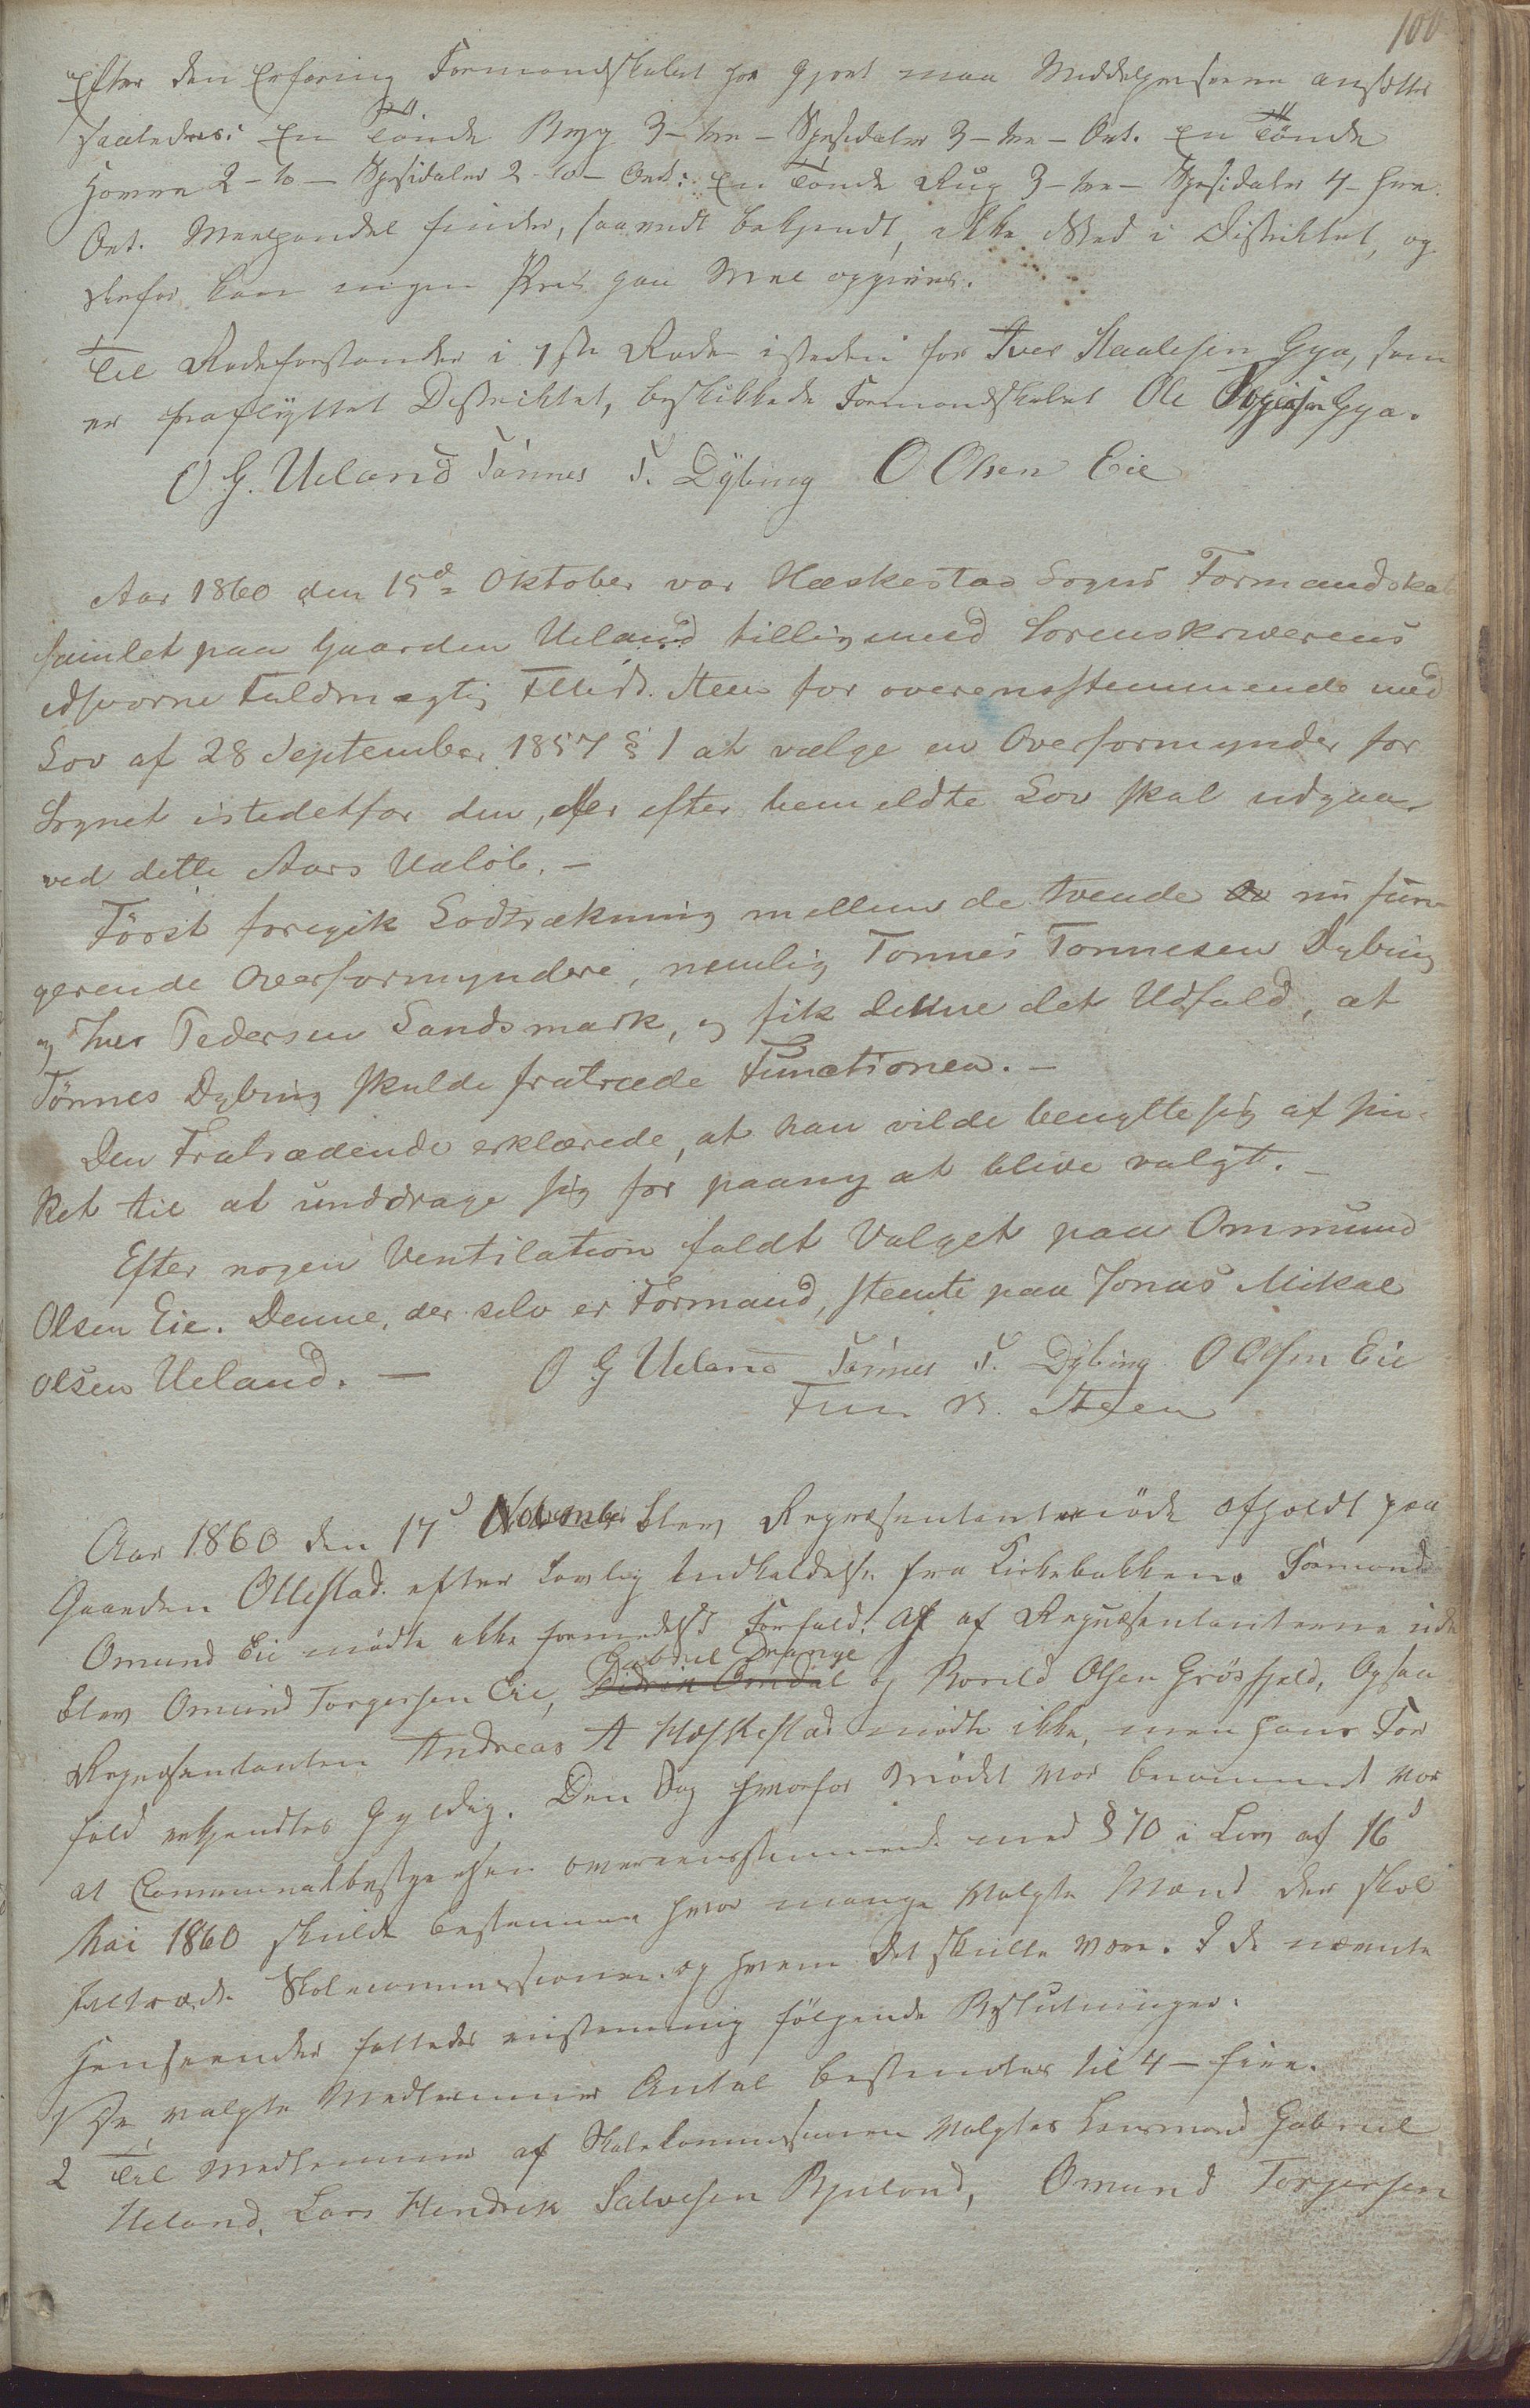 100
Efter den Erfaring Formandskabet har gjort maa Middelpriserne ansættes
saaledes: En Tønde Byg 3-tre- Spesidaler 3-tre- Ort. En Tønde
Havre 2-to- Spesidaler 2-to- Ort: En Tønde Rug 3-tre- Spesidaler 4-fire
Ort. Meelhandel finder, saavidt bekjendt, ikke Sted i Distriktet, og
derfor kan ingen Priis paa Meel opgives.
Til Rodeforstander i 1ste Rode isteden for Iver Staalesen Gya, som
er fraflyttet Distriktet, beskikkede Formandskabet Ole Gya.
O G. Ueland Tønnes T. Dybing O Olsen Eie
Aar 1860 den 15de Oktober var Hæskestad Sogns Formandskab
samlet paa Gaarden Ueland tilligemed Sorenskriverens
edsvorne Fuldmægtig Steen for overensstemmende med
Lov af 28 September 1857 § 1 at vælge en Overformynder for
Sognet istedetfor den, der efter bemeldte Lov skal udgaa
ved dette Aars Udløb. -
Først foregik Lodtrækning mellem de tvende nu fun-
gerende Overformyndere, nemlig Tønnes Tønnesen Dybing
og Iver Pedersen Sandsmark, og fik denne det Udfald, at
Tønnes Dybing skulde fratræde Functionen. -
Den Fratrædende erklærede, at han vilde benytte sig af sin
Ret til at unddrage sig for paany at blive valgt. -
Efter nogen Ventilation faldt Valget paa Ommund
Olsen Eie. Denne, der selv er Formand, stemte paa Jonas Mikal
Olsen Ueland. - O G Ueland Tønnes T. Dybing O Olsen Eie
Steen
Aar 1860 den 17d November blev Repræsentantmøde afholdt paa
Gaarden Ollestad efter lovlig Indkaldelse fra Kirkebakken. Formand
Omund Eie mødte ikke formedelst Forfald. Af af Repræsentanterne ude
blev Omund Torgersen Eie, Didrik Omdal Gabriel Drange og Olsen Grøsfjeld, Ogsaa
Repræsentanten Andreas A Hæskestad mødte ikke, men hans For
fald erkjendtes gyldig. Den Sag hvorfor Mødet var berammet var
at Communalbestyrelsen overeensstemmende med § 70 i Lov af 16d
Mai 1860 skulde bestemme hvor mange valgte Mænd der skal
tiltræde Skolecommissionen og hvem det skulle være. I de nævnte
Henseender fattedes eenstemmig følgende Beslutninger.
1 De valgte Medlemmers Antal bestemtes til 4 - fire.
2 Til Medlemmer af Skolekommissionen valgtes Lensmand Gabriel
Ueland, Lars Hendrik Salvesen Bjuland, Omund Torgersen